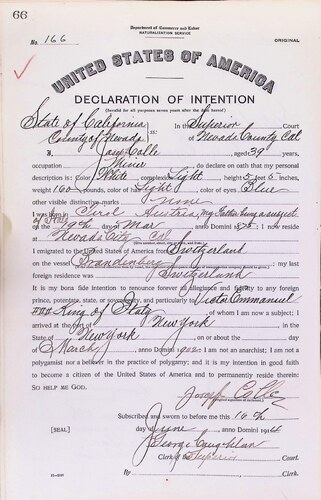 66
Department of Commerce and Labor
NATURALIZATION SERVICE
No. 166
ORIGINAL
UNITED STATES OF AMERICA
DECLARATION OF INTENTION
(Invalid for all purposes seven years after the date hereof)
State of California
County of Nevada
ss:
In the Superior Court
of Nevada County Cal
I, Joseph Calle aged 39 years,
occupation Miner do declare on oath that my personal
description is: Color White, complexion Light, height 5 feet 5 inches,
weight 160 pounds, color of hair Light, color of eyes Blue
other visible distinctive marks None
I was born in Tirol Austria, my Father being a subject
of Italy
on the 19th day of Mar, anno Domini ; I now reside
at Nevada City Cal
I emigrated to the United States of America from Switzerland
on the vessel Brandenberg; my last
foreign residence was Switzerland
It is my bona fide intention to renounce forever all allegiance and fidelity to any foreign
prince, potentate, state, or sovereignty, and particularly to Victor Emmanuel
King of Italy, of whom I am now a subject; I
arrived at the port of New York, in the
State of New York on or about the day
of March, anno Domini 1902; I am not an anarchist; I am not a
polygamist nor a believer in the practice of polygamy; and it is my intention in good faith
to become a citizen of the United States of America and to permanently reside therein:
SO HELP ME GOD.
Joseph Calle
Subscribed and sworn to before me this 16th
[SEAL] day of June, anno Domini 1914
George Coughlan
Clerk of the Superior Court.
By , Clerk.